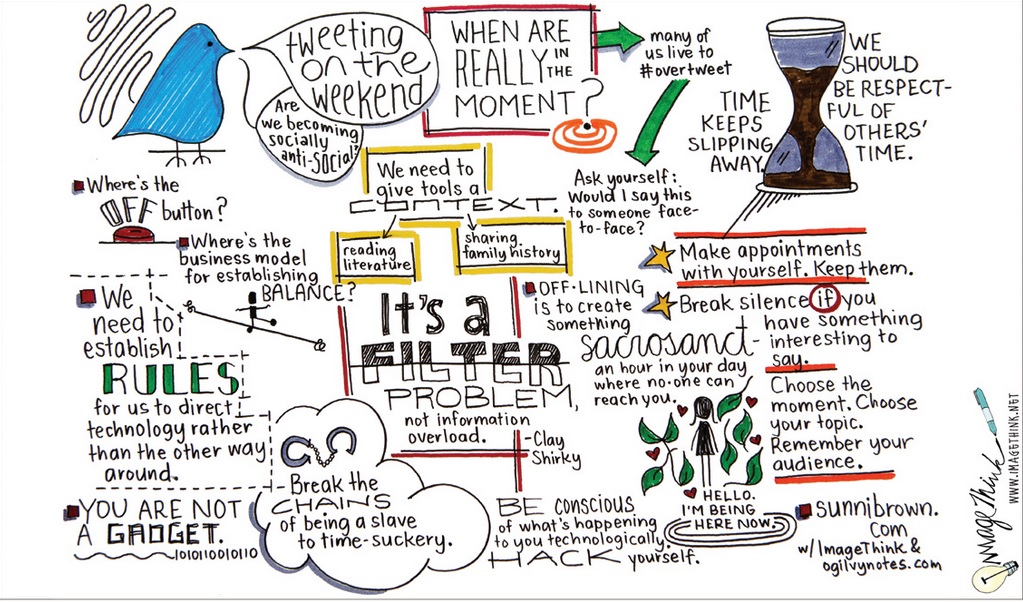 tweeting
on the
weekend
Are
we becoming
socially
anti-social?
WHEN ARE
REALLY IN THE
MOMENT?
many of
us live to
#overtweet
Ask yourself:
Would I say this
to someone face-
to-face?
TIME
KEEPS
SLIPPING
AWAY.
WE
SHOULD
BE RESPECT-
FUL OF
OTHERS'
TIME.
We need to
give tools a
CONTEXT.
reading
literature
sharing
family history
Where's the
OFF button?
Where's the
business model
for establishing
BALANCE?
We
need to
establish
RULES
for us to direct
technology rather
than the other way
around.
YOU ARE NOT
A GADGET.
101011001011O
Break the
CHAINS
of being a slave
to time-suckery.
It's a
FILTER
PROBLEM,
not information
overload.
-Clay
Shirky
OFF-LINING
is to create
something
sacrosanct-
an hour in your day
where no-one can
reach you.
HELLO.
I'M BEING
HERE NOW.
BE CONSCIOUS
of what's happening
to you technologically.
HACK yourself.
Make appointments
with yourself. Keep them.
Break silence if you
have something
interesting to
say.
Choose the
moment. Choose
your topic.
Remember your
audience.
sunnibrown.
com
w/ImageThink &
ogilvynotes.com
ImageThink
WWW.IMAGETHINK.NET